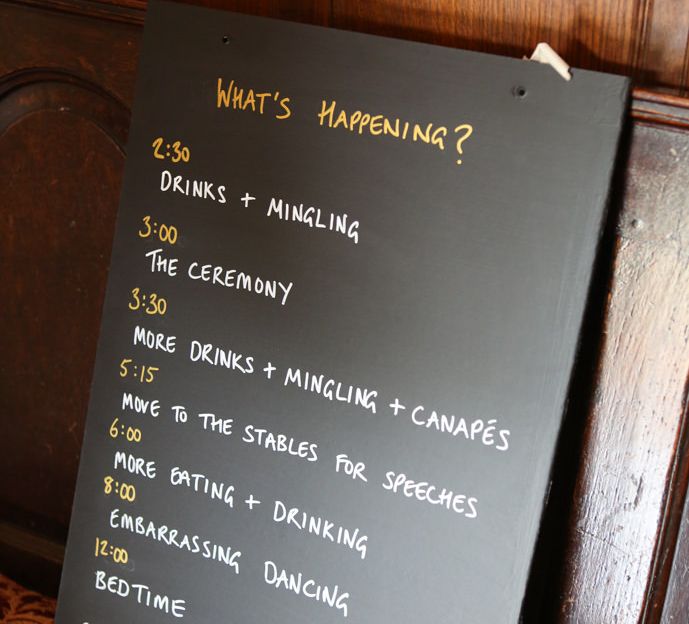 WHAT'S HAPPENING?
2:30
DRINKS + MINGLING
3:00
THE CEREMONY
3:30
MORE DRINKS + MINGLING + CANAPÉS
5:15
MOVE TO THE STABLES FOR SPEECHES
6:00
MORE EATING + DRINKING
8:00
EMBARRASSING DANCING
12:00
BEDTIME